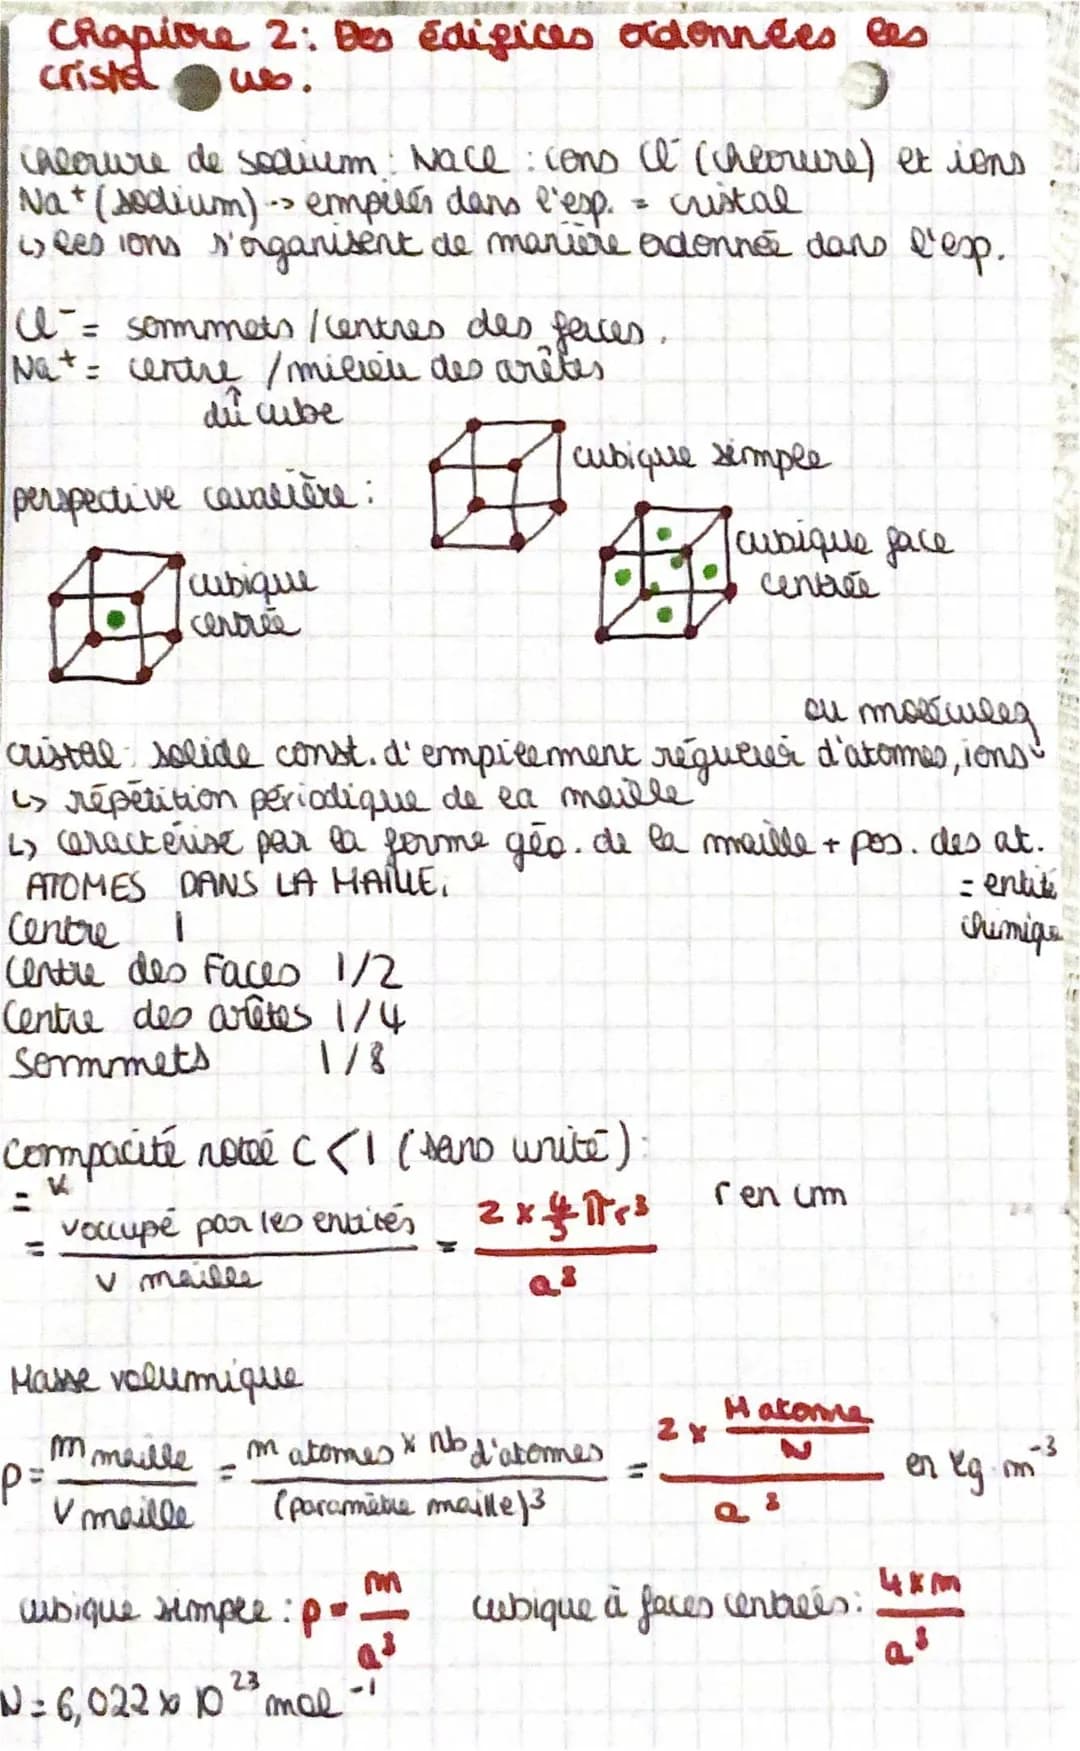 Chapitre 2: Des édifices ordonnées les
crista ux.
Chlorure de sodium : NaCl : ions Cl⁻ (chlorure) et ions
Na⁺ (sodium) -> empilés dans l'esp. = cristal
↳ les ions s'organisent de manière ordonnée dans l'esp.
Cl⁻ = sommets / centres des faces.
Na⁺ = centre / milieu des arêtes
du cube
cubique simple
perspective cavalière :
cubique face
centrée
cubique
centrée
ou molécules
cristal : solide const. d'empilement régulier d'atomes, ions
↳ répétition périodique de la maille
↳ caractérisé par la forme géo. de la maille + pos. des at.
ATOMES DANS LA MAILLE.
= entité
chimique
Centre 1
Centre des Faces 1/2
Centre des arêtes 1/4
Sommets 1/8
Compacité notée C < 1 (sans unité) :
= V occupé par les entités / V maille = 2 x 4/3 πr³ / a³
r en cm
Masse volumique
ρ = m maille / V maille = m atomes x nb d'atomes / (paramètre maille)³ = 2 x M atome / N / a³ en kg.m⁻³
cubique simple : ρ = m / a³ cubique à faces centrées : 4 x m / a³
N = 6,022 x 10²³ mol⁻¹